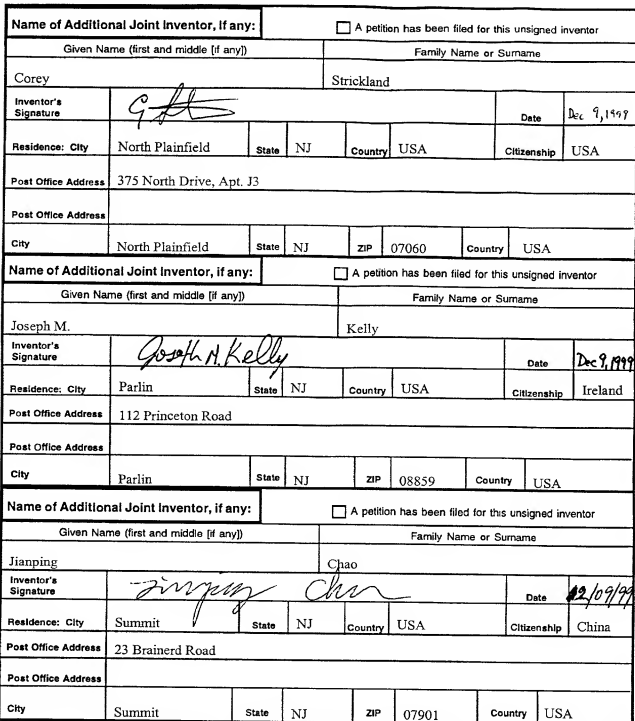 Name of Additional Joint Inventor, if any: A petition has been filed for this unsigned inventor
Given Name (first and middle [if any]) Family Name or Surname
Corey Strickland
Inventor's Signature Date Dec 9, 1999
Residence: City North Plainfield State NJ Country USA Citizenship USA
Post Office Address 375 North Drive, Apt. J3
Post Office Address
City North Plainfield State NJ ZIP 07060 Country USA
Name of Additional Joint Inventor, if any: A petition has been filed for this unsigned inventor
Given Name (first and middle [if any]) Family Name or Surname
Joseph M. Kelly
Inventor's Signature Joseph M. Kelly Date Dec 9, 1999
Residence: City Parlin State NJ Country USA Citizenship Ireland
Post Office Address 112 Princeton Road
Post Office Address
City Parlin State NJ ZIP 08859 Country USA
Name of Additional Joint Inventor, if any: A petition has been filed for this unsigned inventor
Given Name (first and middle [if any]) Family Name or Surname
Jianping Chao
Inventor's Signature Jianping Chao Date 12/09/99
Residence: City Summit State NJ Country USA Citizenship China
Post Office Address 23 Brainerd Road
Post Office Address
City Summit State NJ ZIP 07901 Country USA